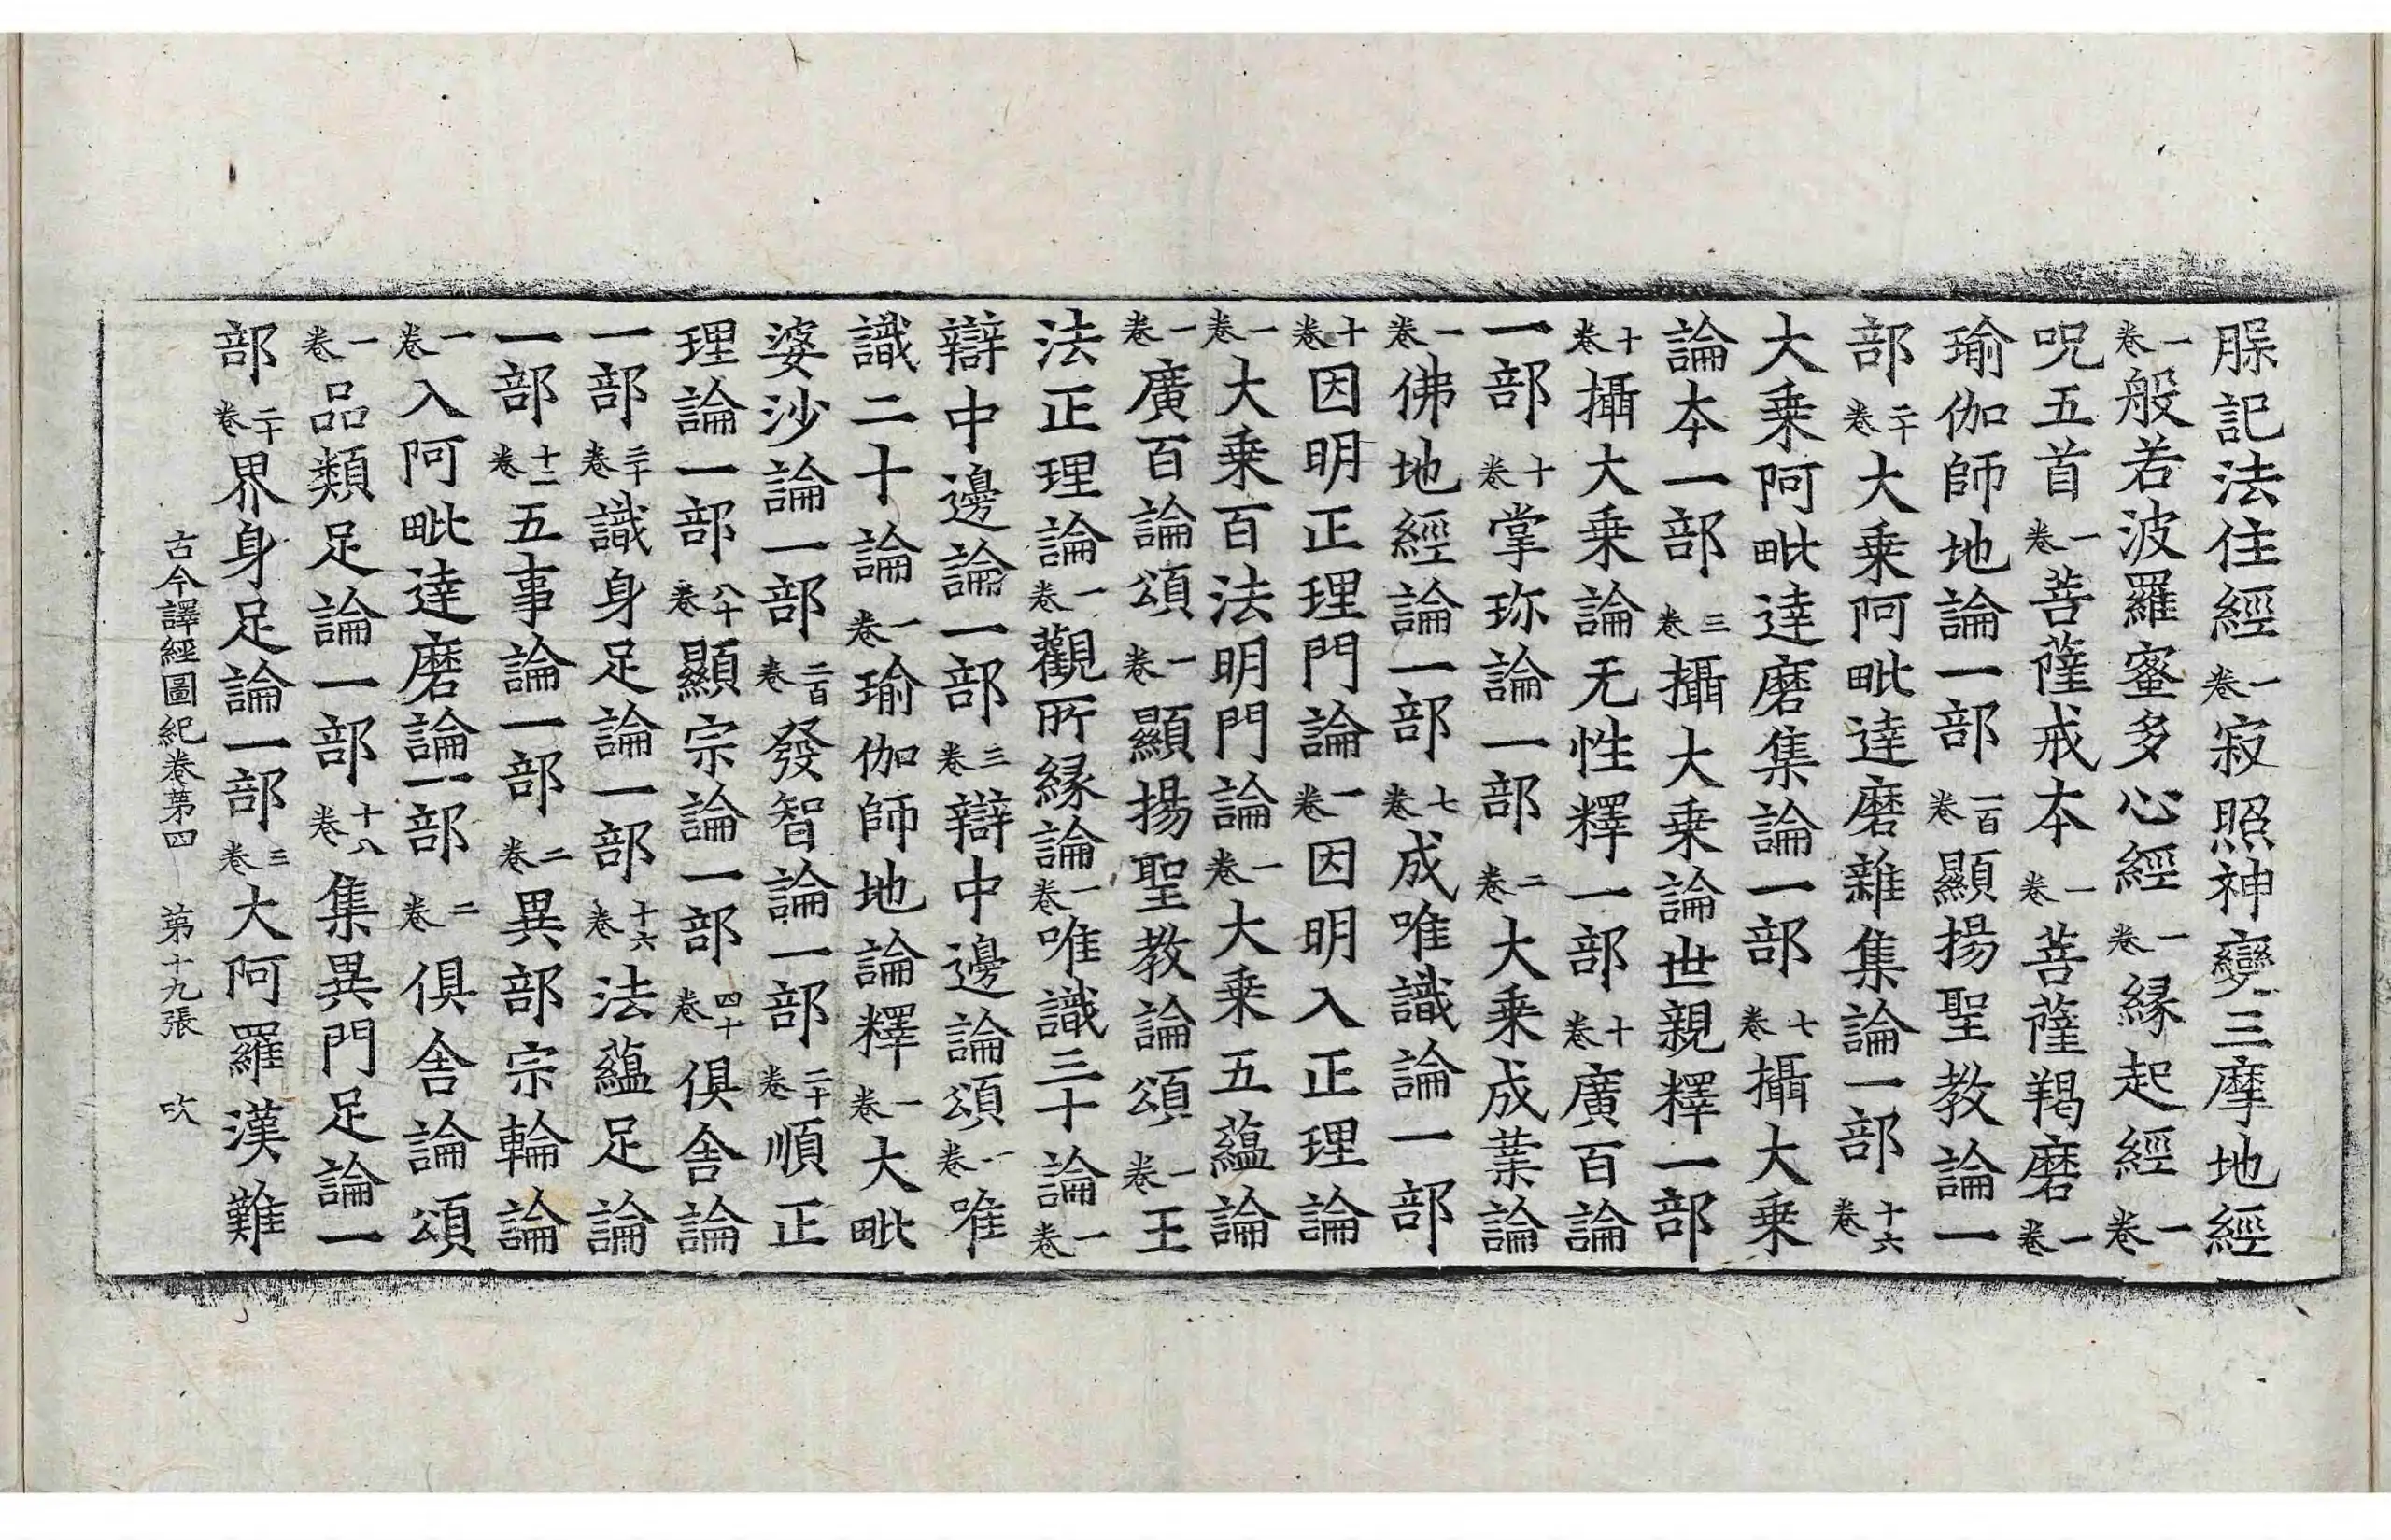 脲記法住經一卷寂照神變三摩地經
一卷般若波羅蜜多心經一卷緣起經一卷
呪五首一卷菩薩戒本一卷菩薩羯磨一卷
瑜伽師地論一部一百卷顯揚聖教論一
部二十卷大乗阿毗達磨雜集論一部十六卷
大乗阿毗達磨集論一部七卷攝大乗
論本一部三卷攝大乗論世親釋一部
十卷攝大乗論无性釋一部十卷廣百論
一部十卷掌珎論一部二卷大乗成業論
一卷佛地經論一部七卷成唯識論一部
十卷因明正理門論一卷因明入正理論
一卷大乗百法明門論一卷大乗五蘊論
一卷廣百論頌一卷顯揚聖教論頌一卷王
法正理論一卷觀所緣論一卷唯識三十論一卷
辯中邊論一部三卷辯中邊論頌一卷唯
識二十論一卷瑜伽師地論釋一卷大毗
婆沙論一部二百卷發智論一部二十卷順正
理論一部八十卷顯宗論一部四十卷俱舍論
一部三十卷識身足論一部十六卷法蘊足論
一部十二卷五事論一部二卷異部宗輪論
一卷入阿毗達磨論一部二卷俱舍論頌
一卷品類足論一部十八卷集異門足論一
部二十卷界身足論一部三卷大阿羅漢難
古今譯經圖紀卷第四　第十九張　吹